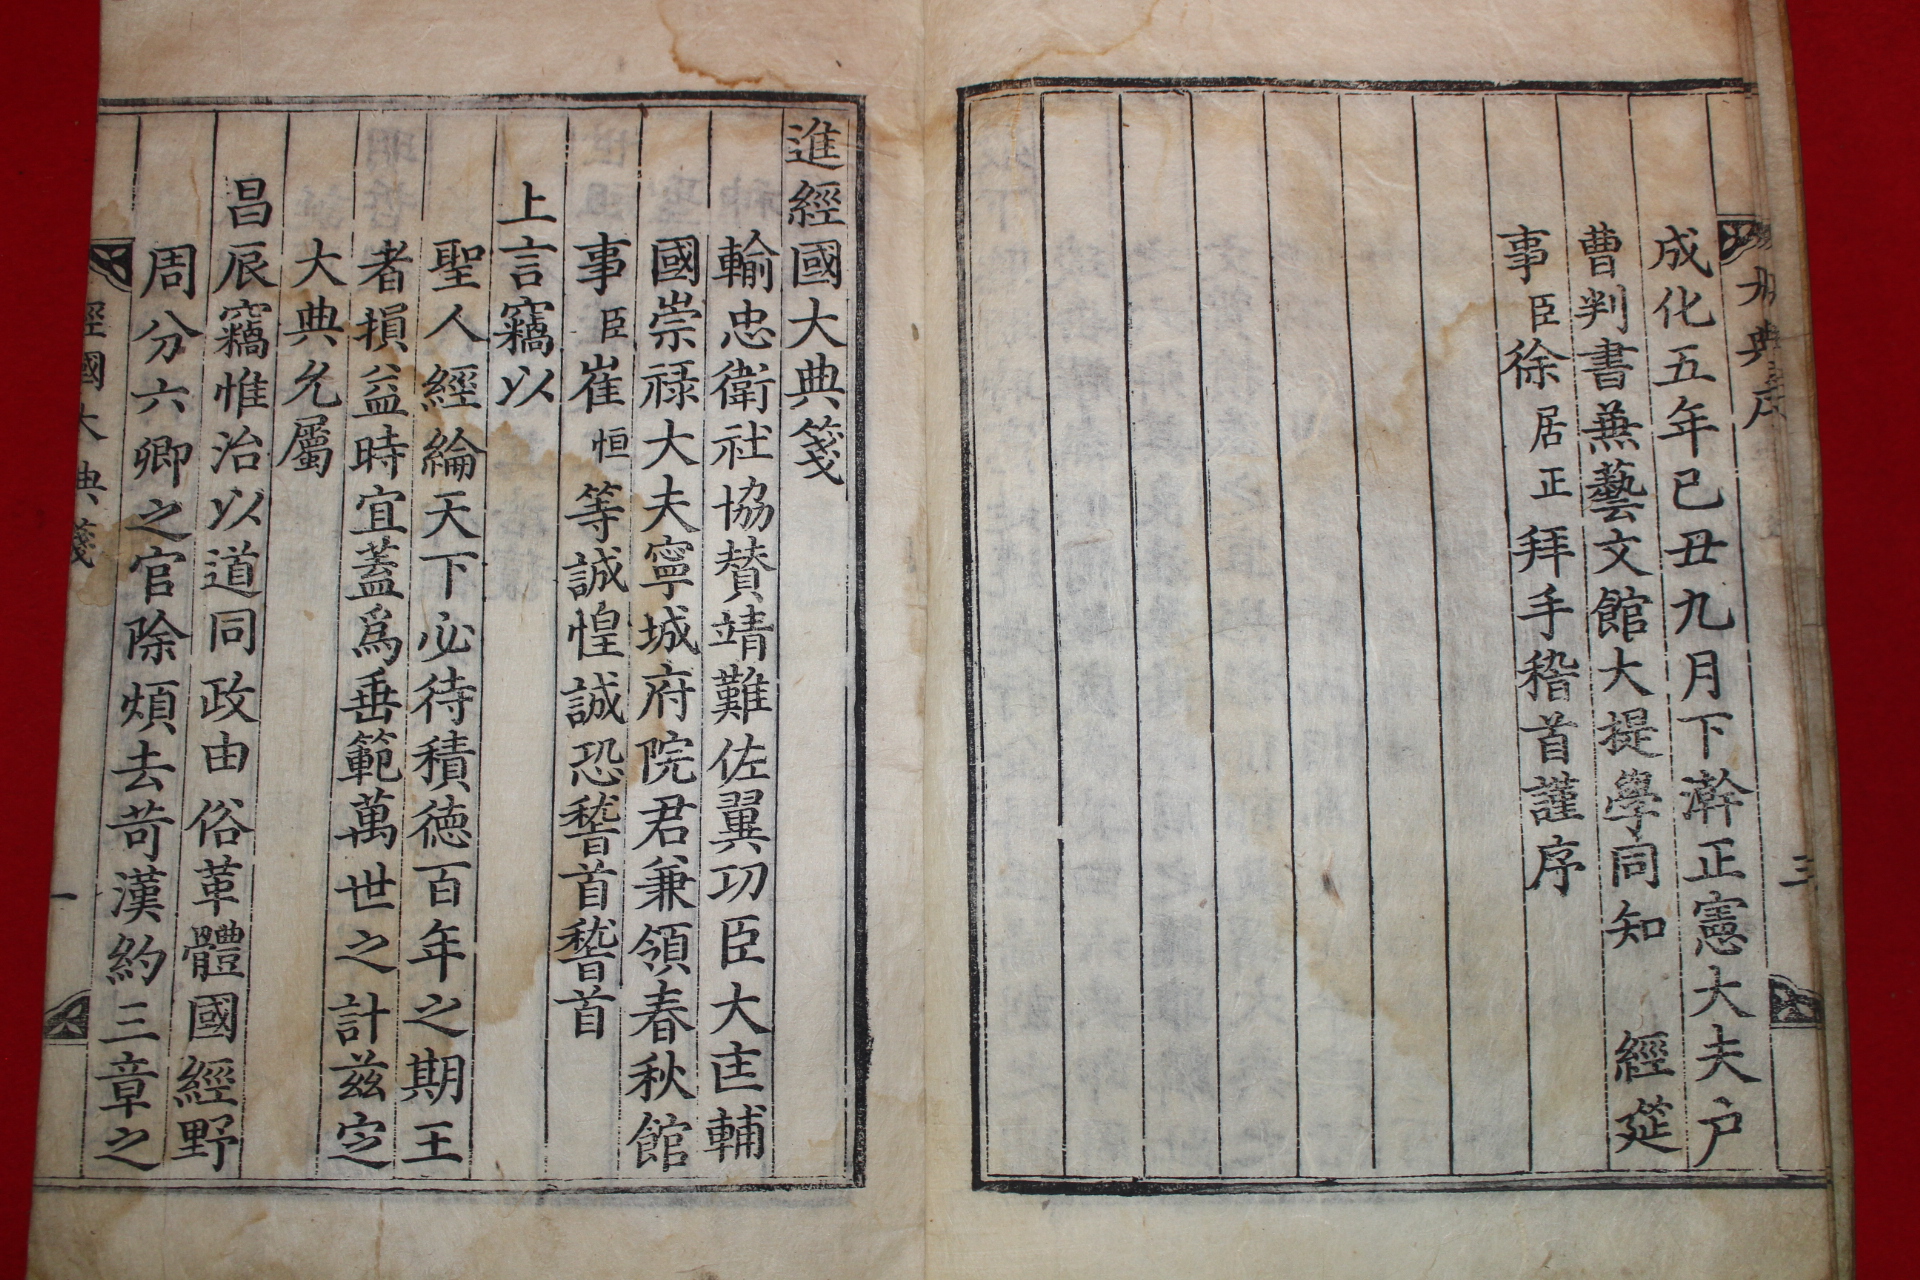 大典序
三
成化五年己丑九月下澣正憲大夫戶
曹判書兼藝文館大提學同知 經筵
事臣徐居正拜手稽首謹序
進經國大典箋
輸忠衛社協贊靖難佐翼功臣大匡輔
國崇祿大夫寧城府院君兼領春秋館
事臣崔恒等誠惶誠恐稽首稽首
上言竊以
聖人經綸天下必待積德百年之期王
者損益時宜蓋爲垂範萬世之計兹定
大典允屬
昌辰竊惟治以道同政由俗革體國經野
周分六卿之官除煩去苛漢約三章之
經國大典箋
一